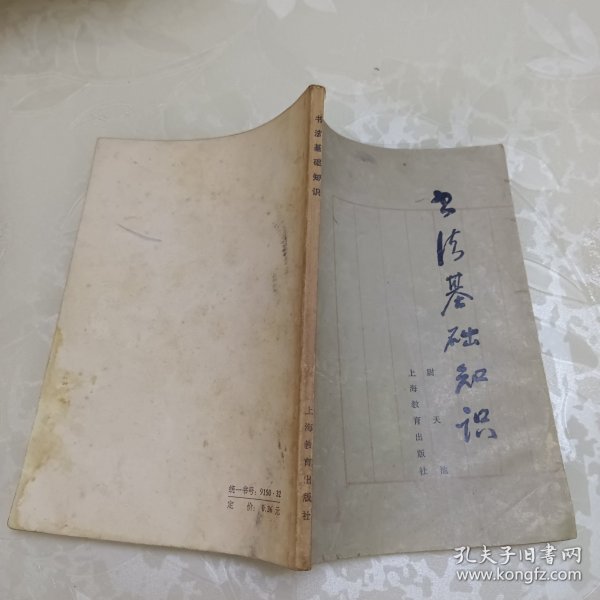 书法基础知识
尉天池
上海教育出版社
书法基础知识
上海教育出版社
统一书号：9150·32
定价：0.36元
孔夫子旧书网
www.kongfz.com